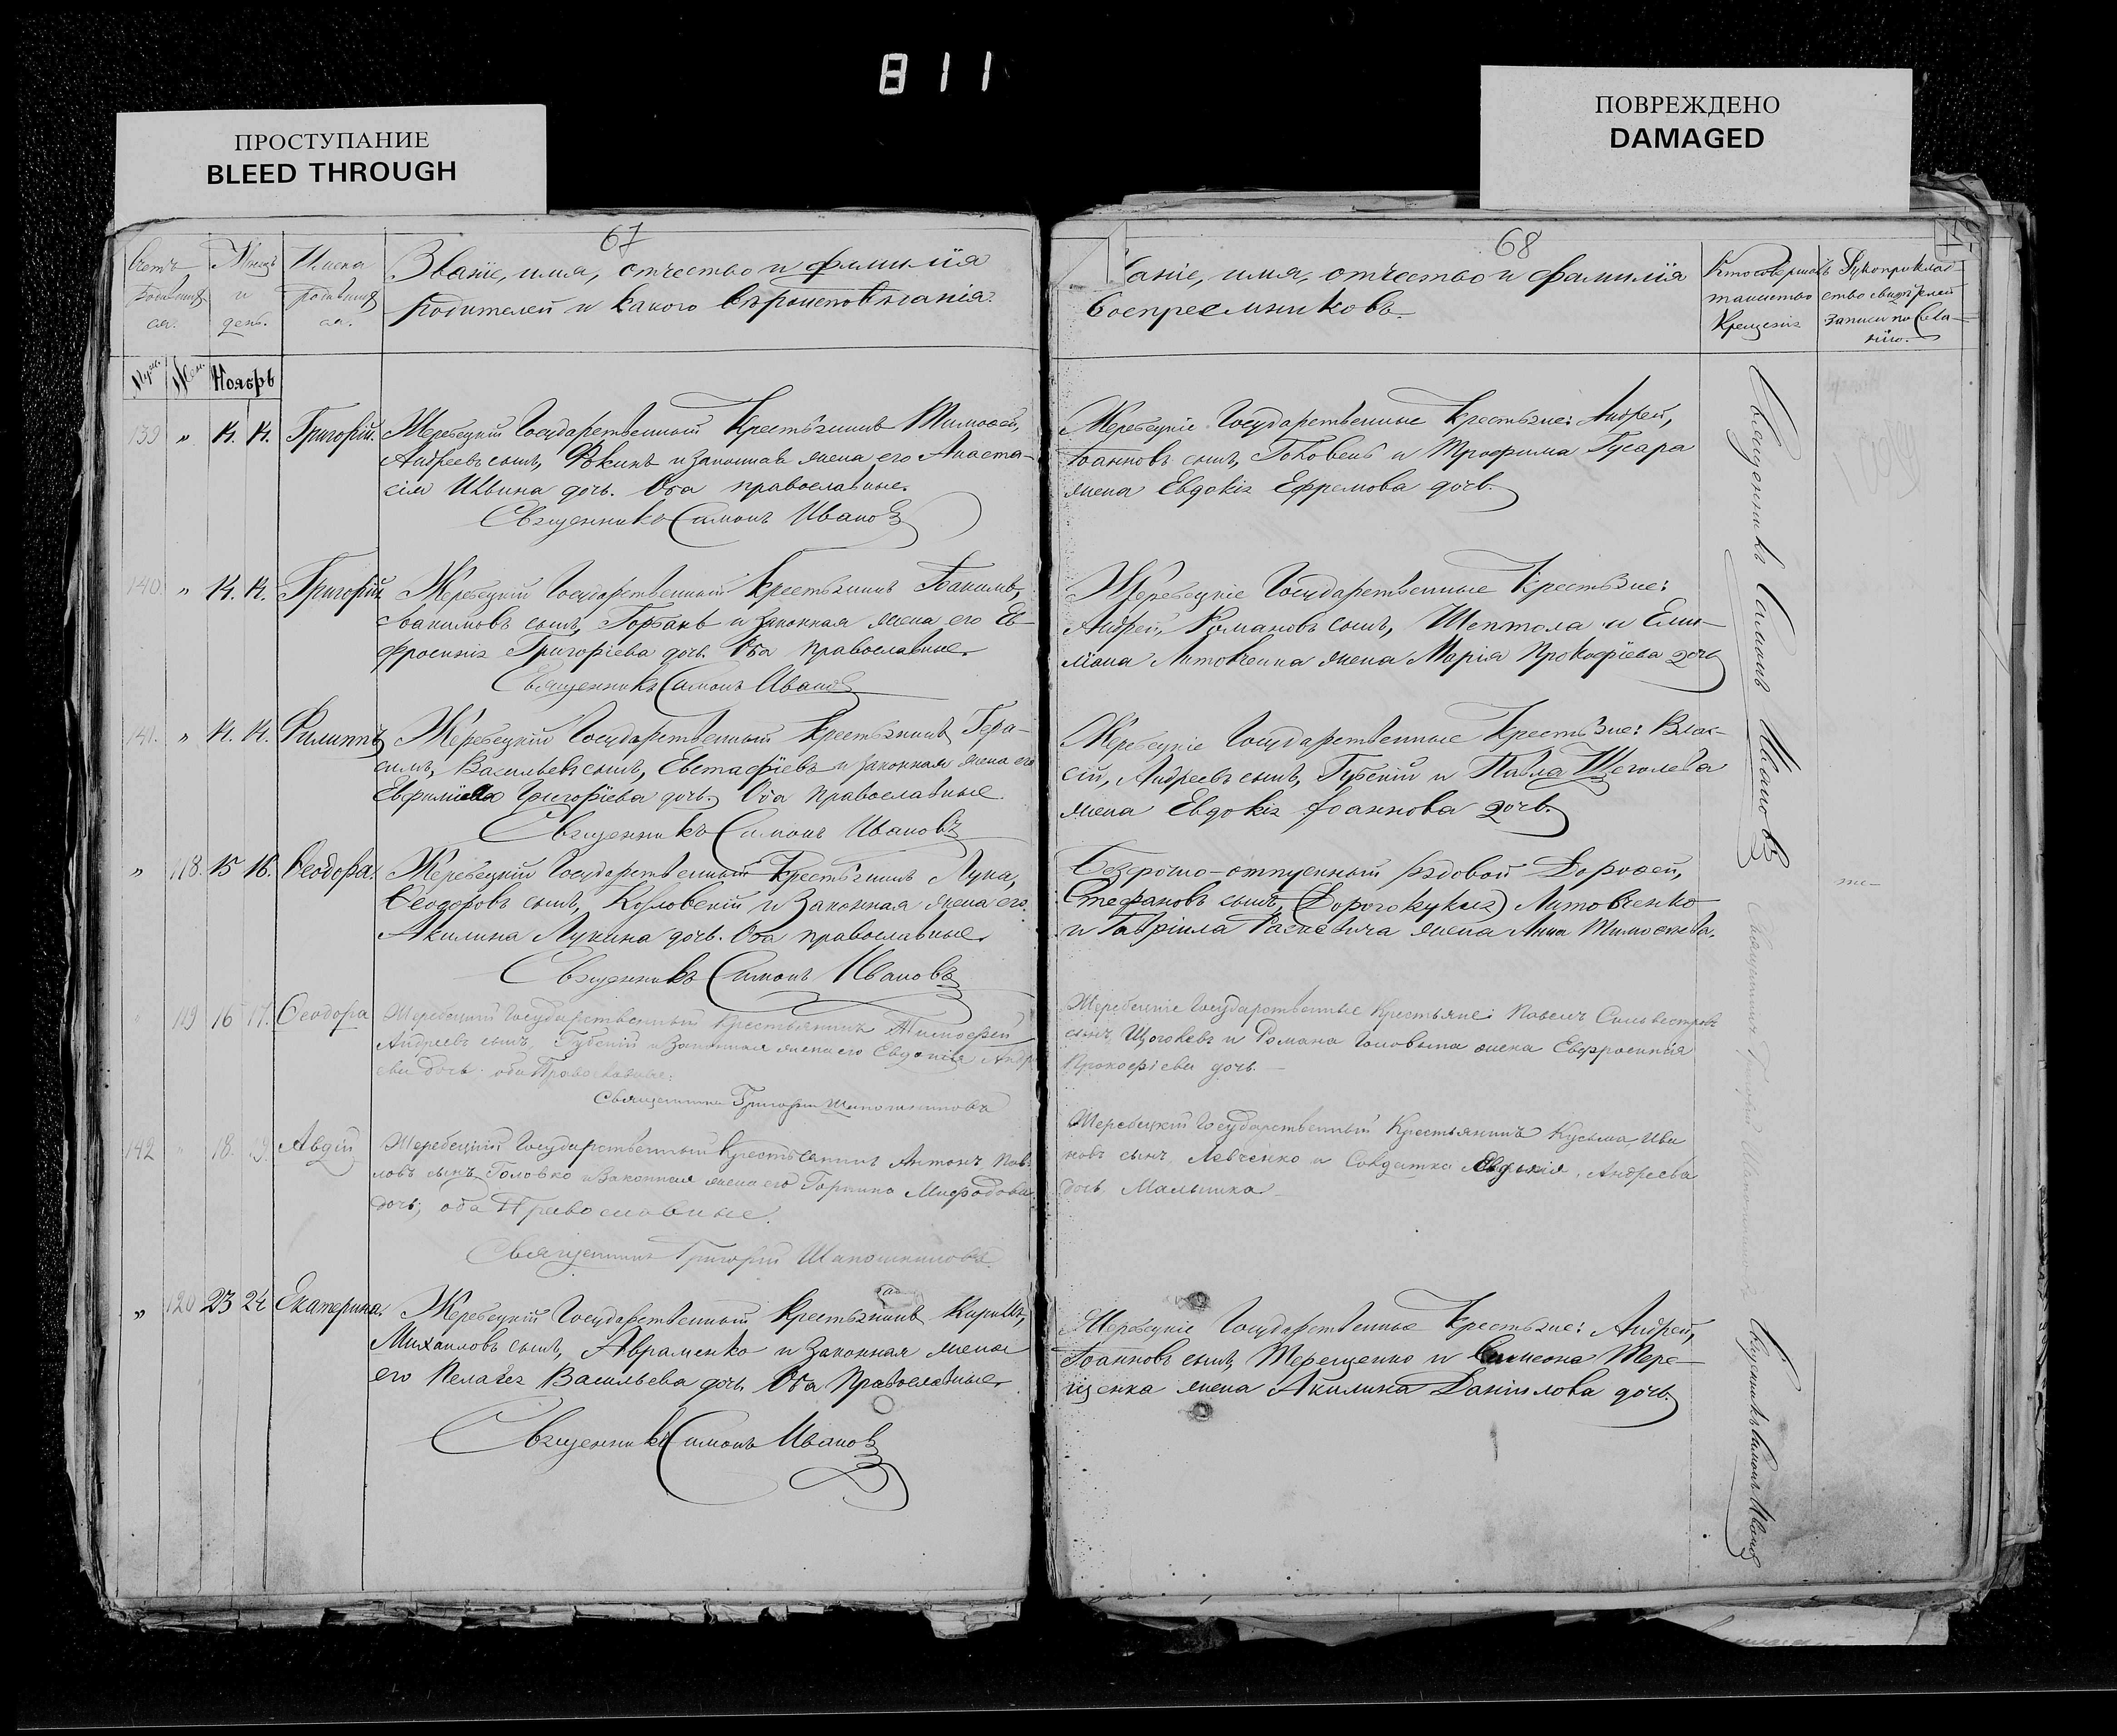 811
ПРОСТУПАНИЕ
BLEED THROUGH
ПОВРЕЖДЕНО
DAMAGED
67
Счетъ родившихся.
Мужс. Жен.
Мѣсяцъ и день.
Ноябрь
Имена родившихся.
Званіе, имя, отчество и фамилія
родителей и какого вѣроисповѣданія.
139 " 14. 14. Григорій.
Жеребецкій Государственный Крестьянинъ Тимоѳей,
Андреевъ сынъ, и законная жена его Анаста-
сія дочь. Оба православные.
Священникъ Симонъ Ивановъ
140. " 14. 14. Григорій
Жеребецкій Государственный Крестьянинъ Іоакимъ,
Іоакимовъ сынъ, Горбань и законная жена его Ев-
фросинія Григоріева дочь. Оба православные.
Священникъ Симонъ Ивановъ
141. " 14. 14. Филиппъ
Жеребецкій Государственный Крестьянинъ Гера-
симъ, Васильевъ сынъ, Евстафіевъ и законная жена его
Григоріева дочь. Оба православные.
Священникъ Симонъ Ивановъ
" 118. 15 16. Ѳеодора.
Жеребецкій Государственный Крестьянинъ Лука,
Ѳеодоровъ сынъ, Козловскій и законная жена его
Акилина Лукина дочь. Оба православные.
Священникъ Симонъ Ивановъ
119 16 17. Ѳеодора
Жеребецкій Государственный Крестьянинъ Тимофей
Андреевъ сынъ, Губскій и Законная жена его Евдокія Андре
ева дочь. оба Православные.
Священникъ Григорій Шапошниковъ
142 " 18. 19. Авдій
Жеребецкій Государственный Крестьянинъ Антонъ Пав
ловъ сынъ, Головко и Законная жена его Горпина
дочь; оба Православные.
Священникъ Григорій Шапошниковъ
" 120 23 24 Екатерина.
Жеребецкій Государственный Крестьянинъ Кириллъ,
Михаиловъ сынъ, Авраменко и законная жена
его Пелагея Васильева дочь. Оба Православные.
Священникъ Симонъ Ивановъ
68
Званіе, имя, отчество и фамилія
воспреемниковъ.
Кто совершалъ
таинство
Крещенія
Рукоприклад-
ство свидѣтелей
записи по жела-
нію.
Жеребецкіе Государственные Крестьяне: Андрей,
Іоанновъ сынъ, и Трофима Гусара
жена Евдокія Ефремова дочь.
Жеребецкіе Государственные Крестьяне:
Андрей, Романовъ сынъ, Шептола и Еми-
ліана Литовченка жена Марія Прокофіева дочь
Жеребецкіе Государственные Крестьяне: Влас-
сій, Андреевъ сынъ, Губскій и Павла Щеголева
жена Евдокія Іоаннова дочь.
Безсрочно-отпускный рядовой Дороѳей,
Стефановъ сынъ, Литовченко
и Гавріила жена Анна Тимоѳеева.
Жеребецкіе Государственные Крестьяне: Павелъ Сильвестровъ
сынъ, Щоголевъ и Романа жена Евфросинія
Прокофіева дочь.
Жеребецкій Государственный Крестьянинъ Кузьма, Ива
новъ сынъ Левченко и Солдатка Евдокія, Андреева
дочь, Малышка
Жеребецкіе Государственные Крестьяне: Андрей,
Іоанновъ сынъ, Терещенко и Симеона Тере-
щенка жена Акилина Даніилова дочь.
Священникъ Симонъ Ивановъ
Священникъ Григорій Шапошниковъ
Священникъ Симонъ Ивановъ